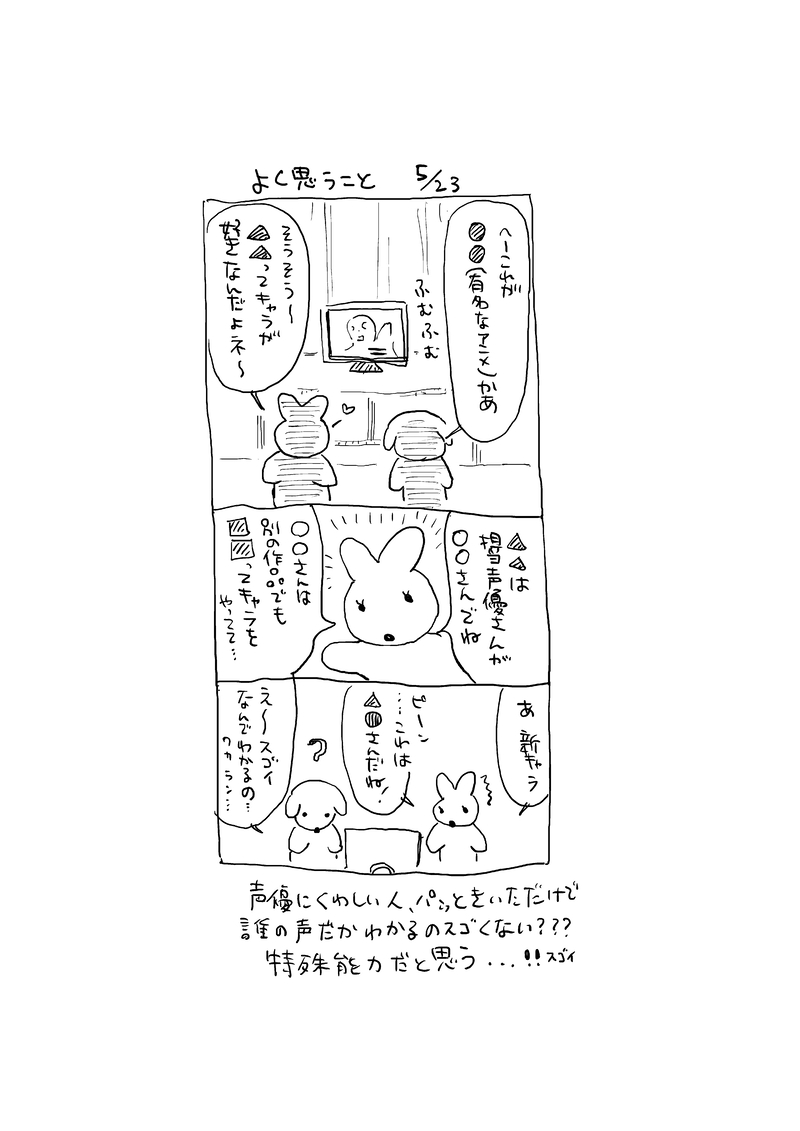 よく思うこと 5/23
へーこれが
●●(有名なアニメ)かあ
ふむふむ
そうそう〜
▲▲ってキャラが
好きなんだよネ〜
▲▲は
担当声優さんが
○○さんでね
○○さんは
別の作品でも
■■ってキャラを
やってて…
あ 新キャラ
ピーン
……これは
▲●さんだね!
?
え〜スゴイ
なんでわかるの…
ワカラン…
声優にくわしい人、パッときいただけで
誰の声だかわかるのスゴくない???
特殊能力だと思う...!!スゴイ